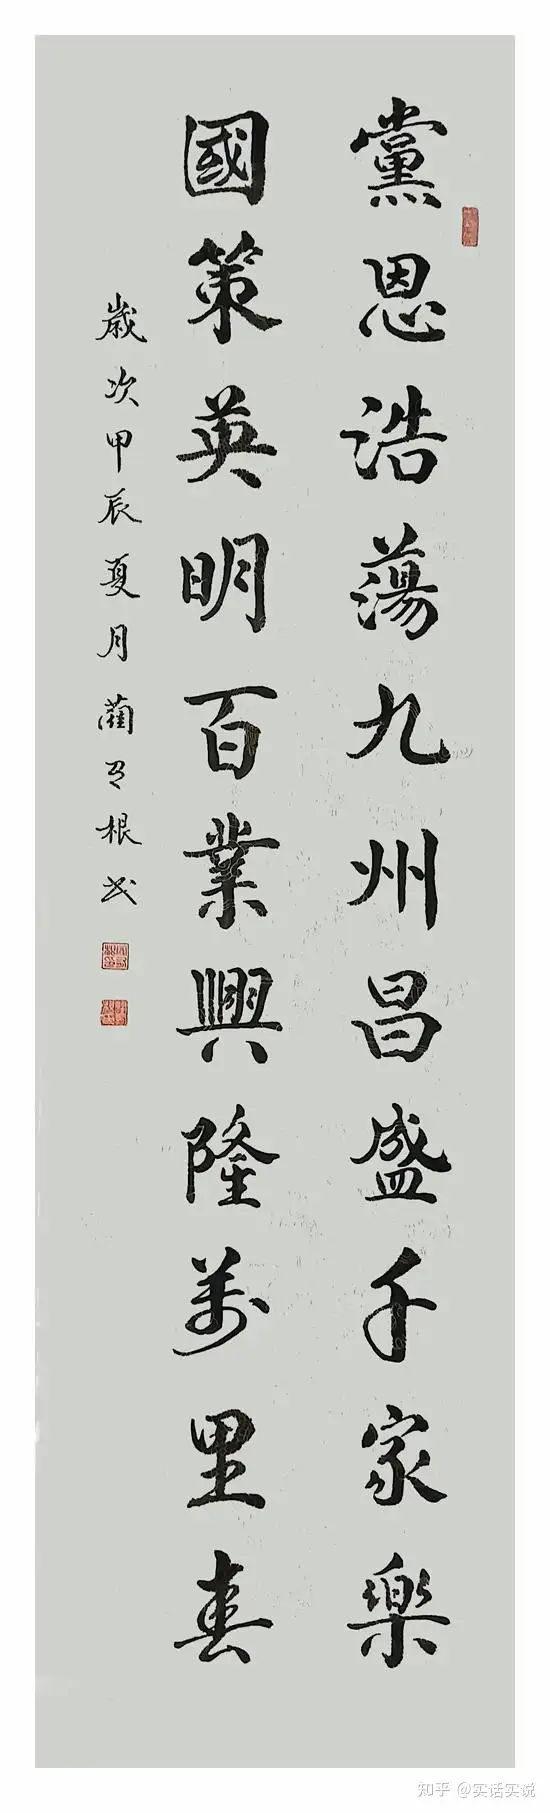 黨恩浩蕩九州昌盛千家樂
國策英明百業興隆萬里春
歲次甲辰夏月藺根书
知乎 @实话实说